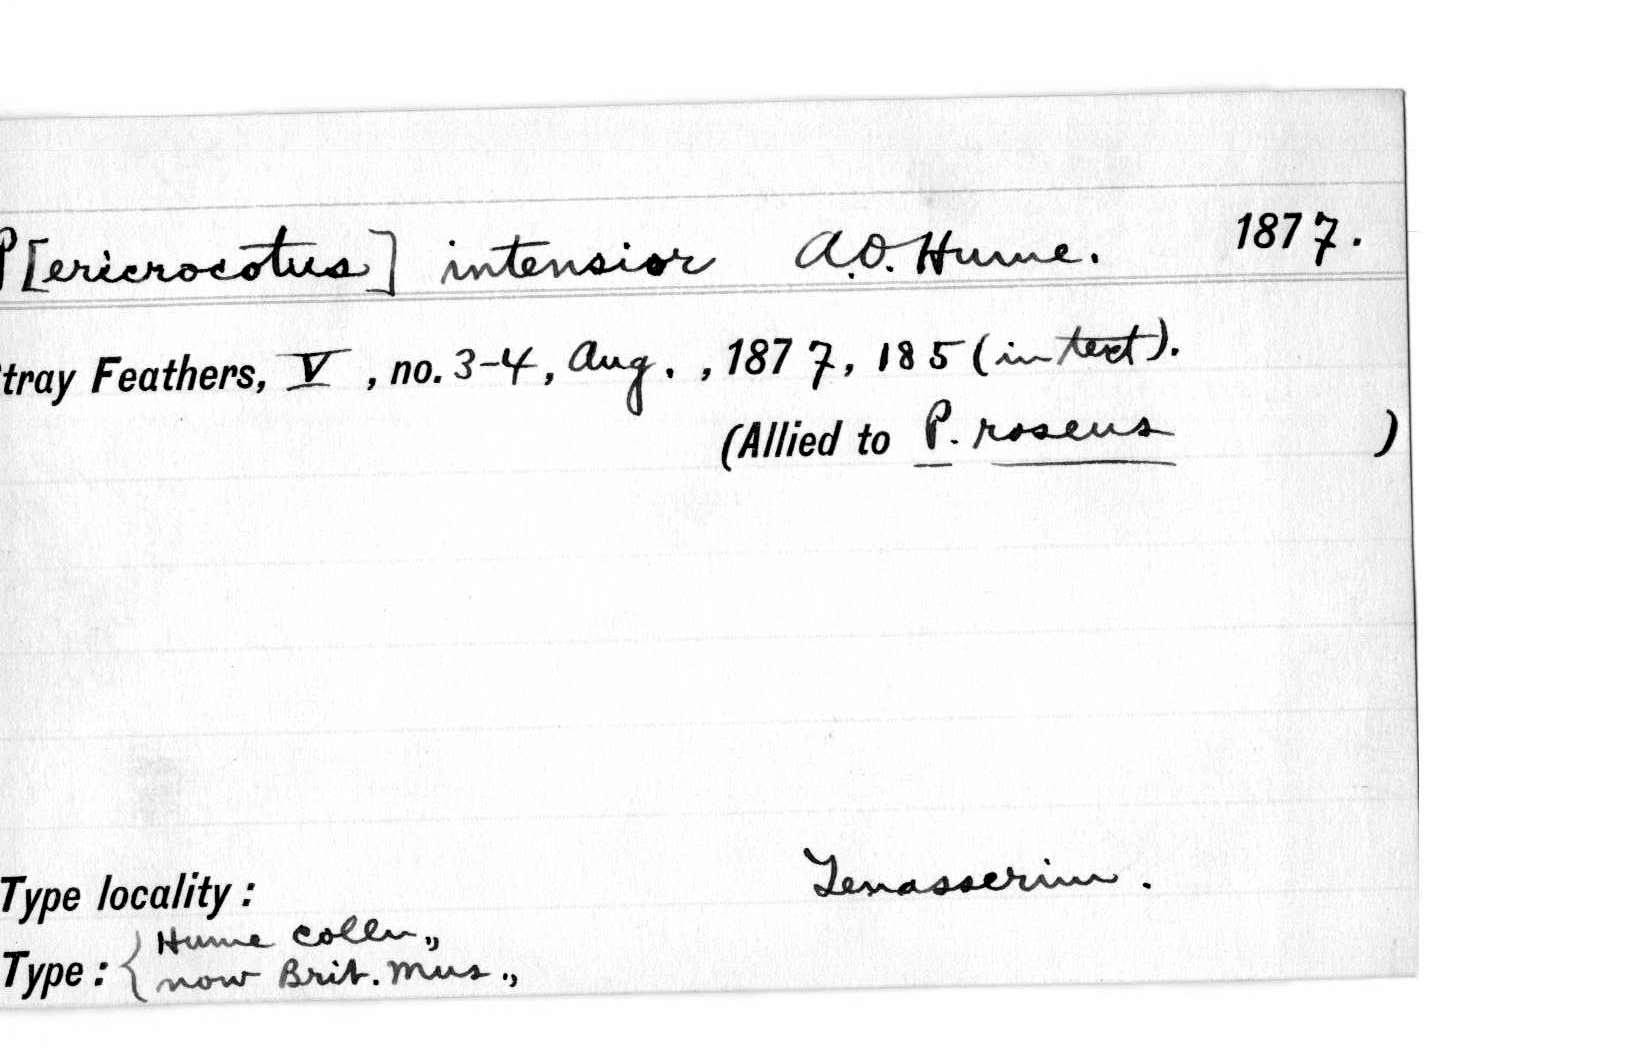 P[ericrocotus] intensior A.O. Hume. 1877.
tray Feathers, V, no. 3-4, Aug., 1877, 185 (in text).
(Allied to P. roseus )
Type locality: Tenasserim.
Type: { Hume colln.,
now Brit. Mus.,